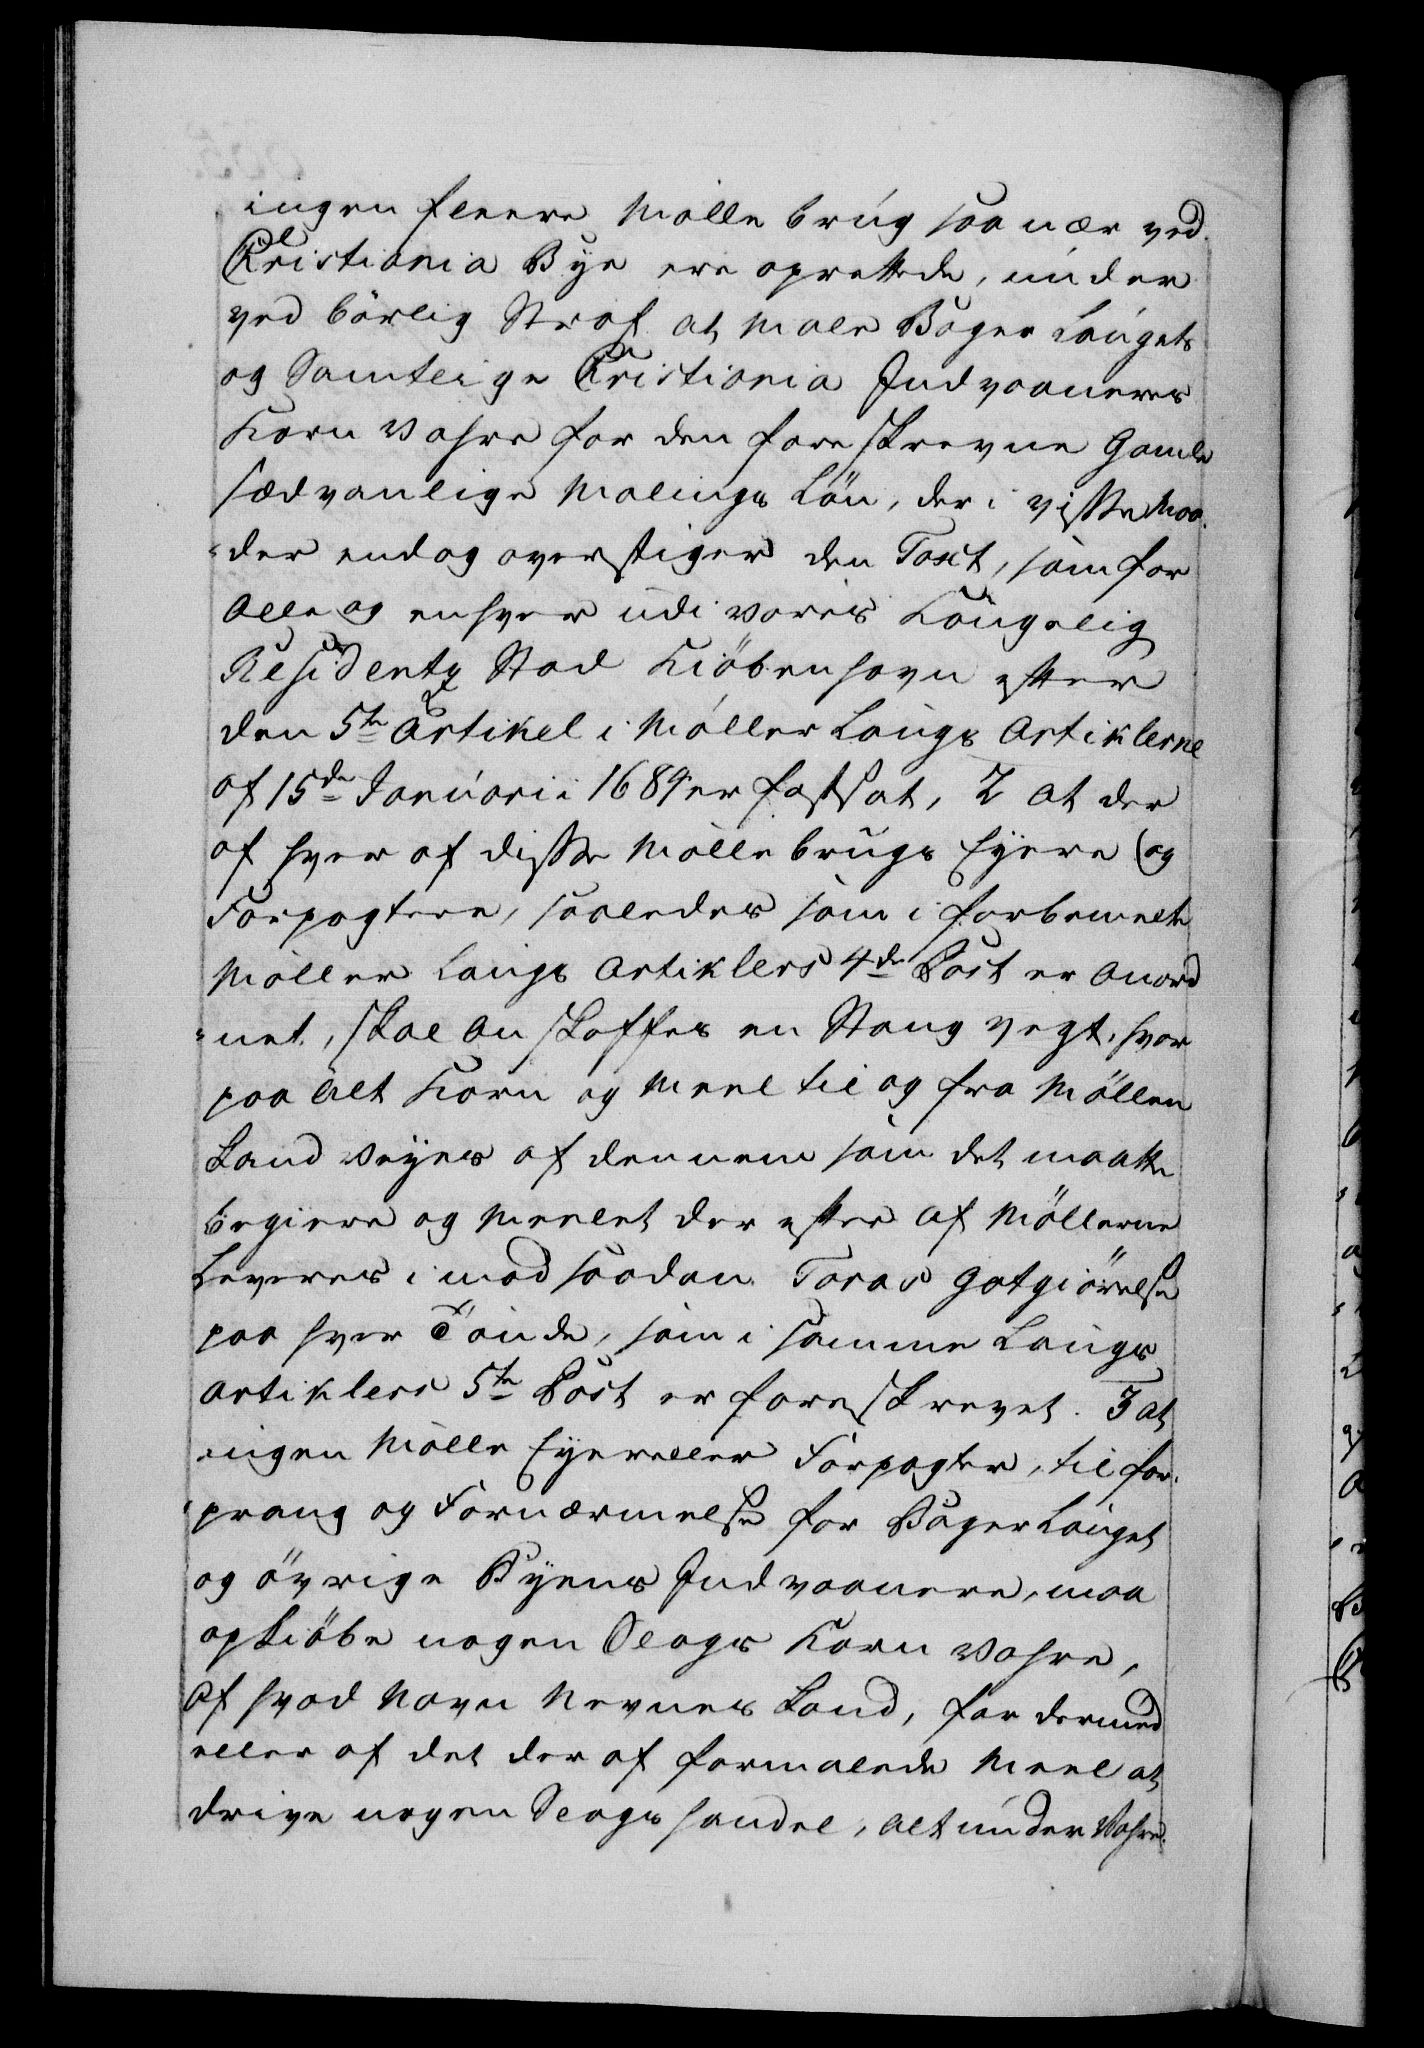 ingen fleere Mölle brúg saa nær ved
Christiania Bye ere oprettede, únder
ved börlig Straf at male Bager Laúgets
og Samtlige Christiania Indvaaneres
Korn Vahre for den foreskrevne Gamle
sædvanlige Malings Lön, der i visse Maa
-der endog overstiger den Taxt, som for
Alle og enhver udi Vores Kongelig
Residentz Stad Kiöbenhavn efter
den 5te Artikel i Möller Laúgs Artiklerne
af 15de Janúarii 1689 er fastsat, 2 at der
af hver af disse Möllebrugs Eyere og
Forpagtere, saaledes som i forbemelte
Möller Laugs Artiklers 4de Post er anord
-net, skal anskaffes en Stang vegt, hvor
paa alt Korn og Meel til og fra Möllen
kand Veyes af dennem som det maatte
begiere og Meelet der efter af Möllerne
Leveres imod saadan Taras Gotgiörelse
paa hver Tönde, som i samme Laugs
Artiklers 5te Post er foreskrevet. 3 at
ingen Mölle Eyer eller Forpagter, til for-
prang og Fornærmelse for Bager Lauget
og övrige Byens Indvaanere, maa
opkiöbe nogen Slags Korn Vahre,
af hvad Navn Nevnes kand, for dermed
eller af det der af formalede Meel at
drive nogen Slags handel, alt under Vahre-